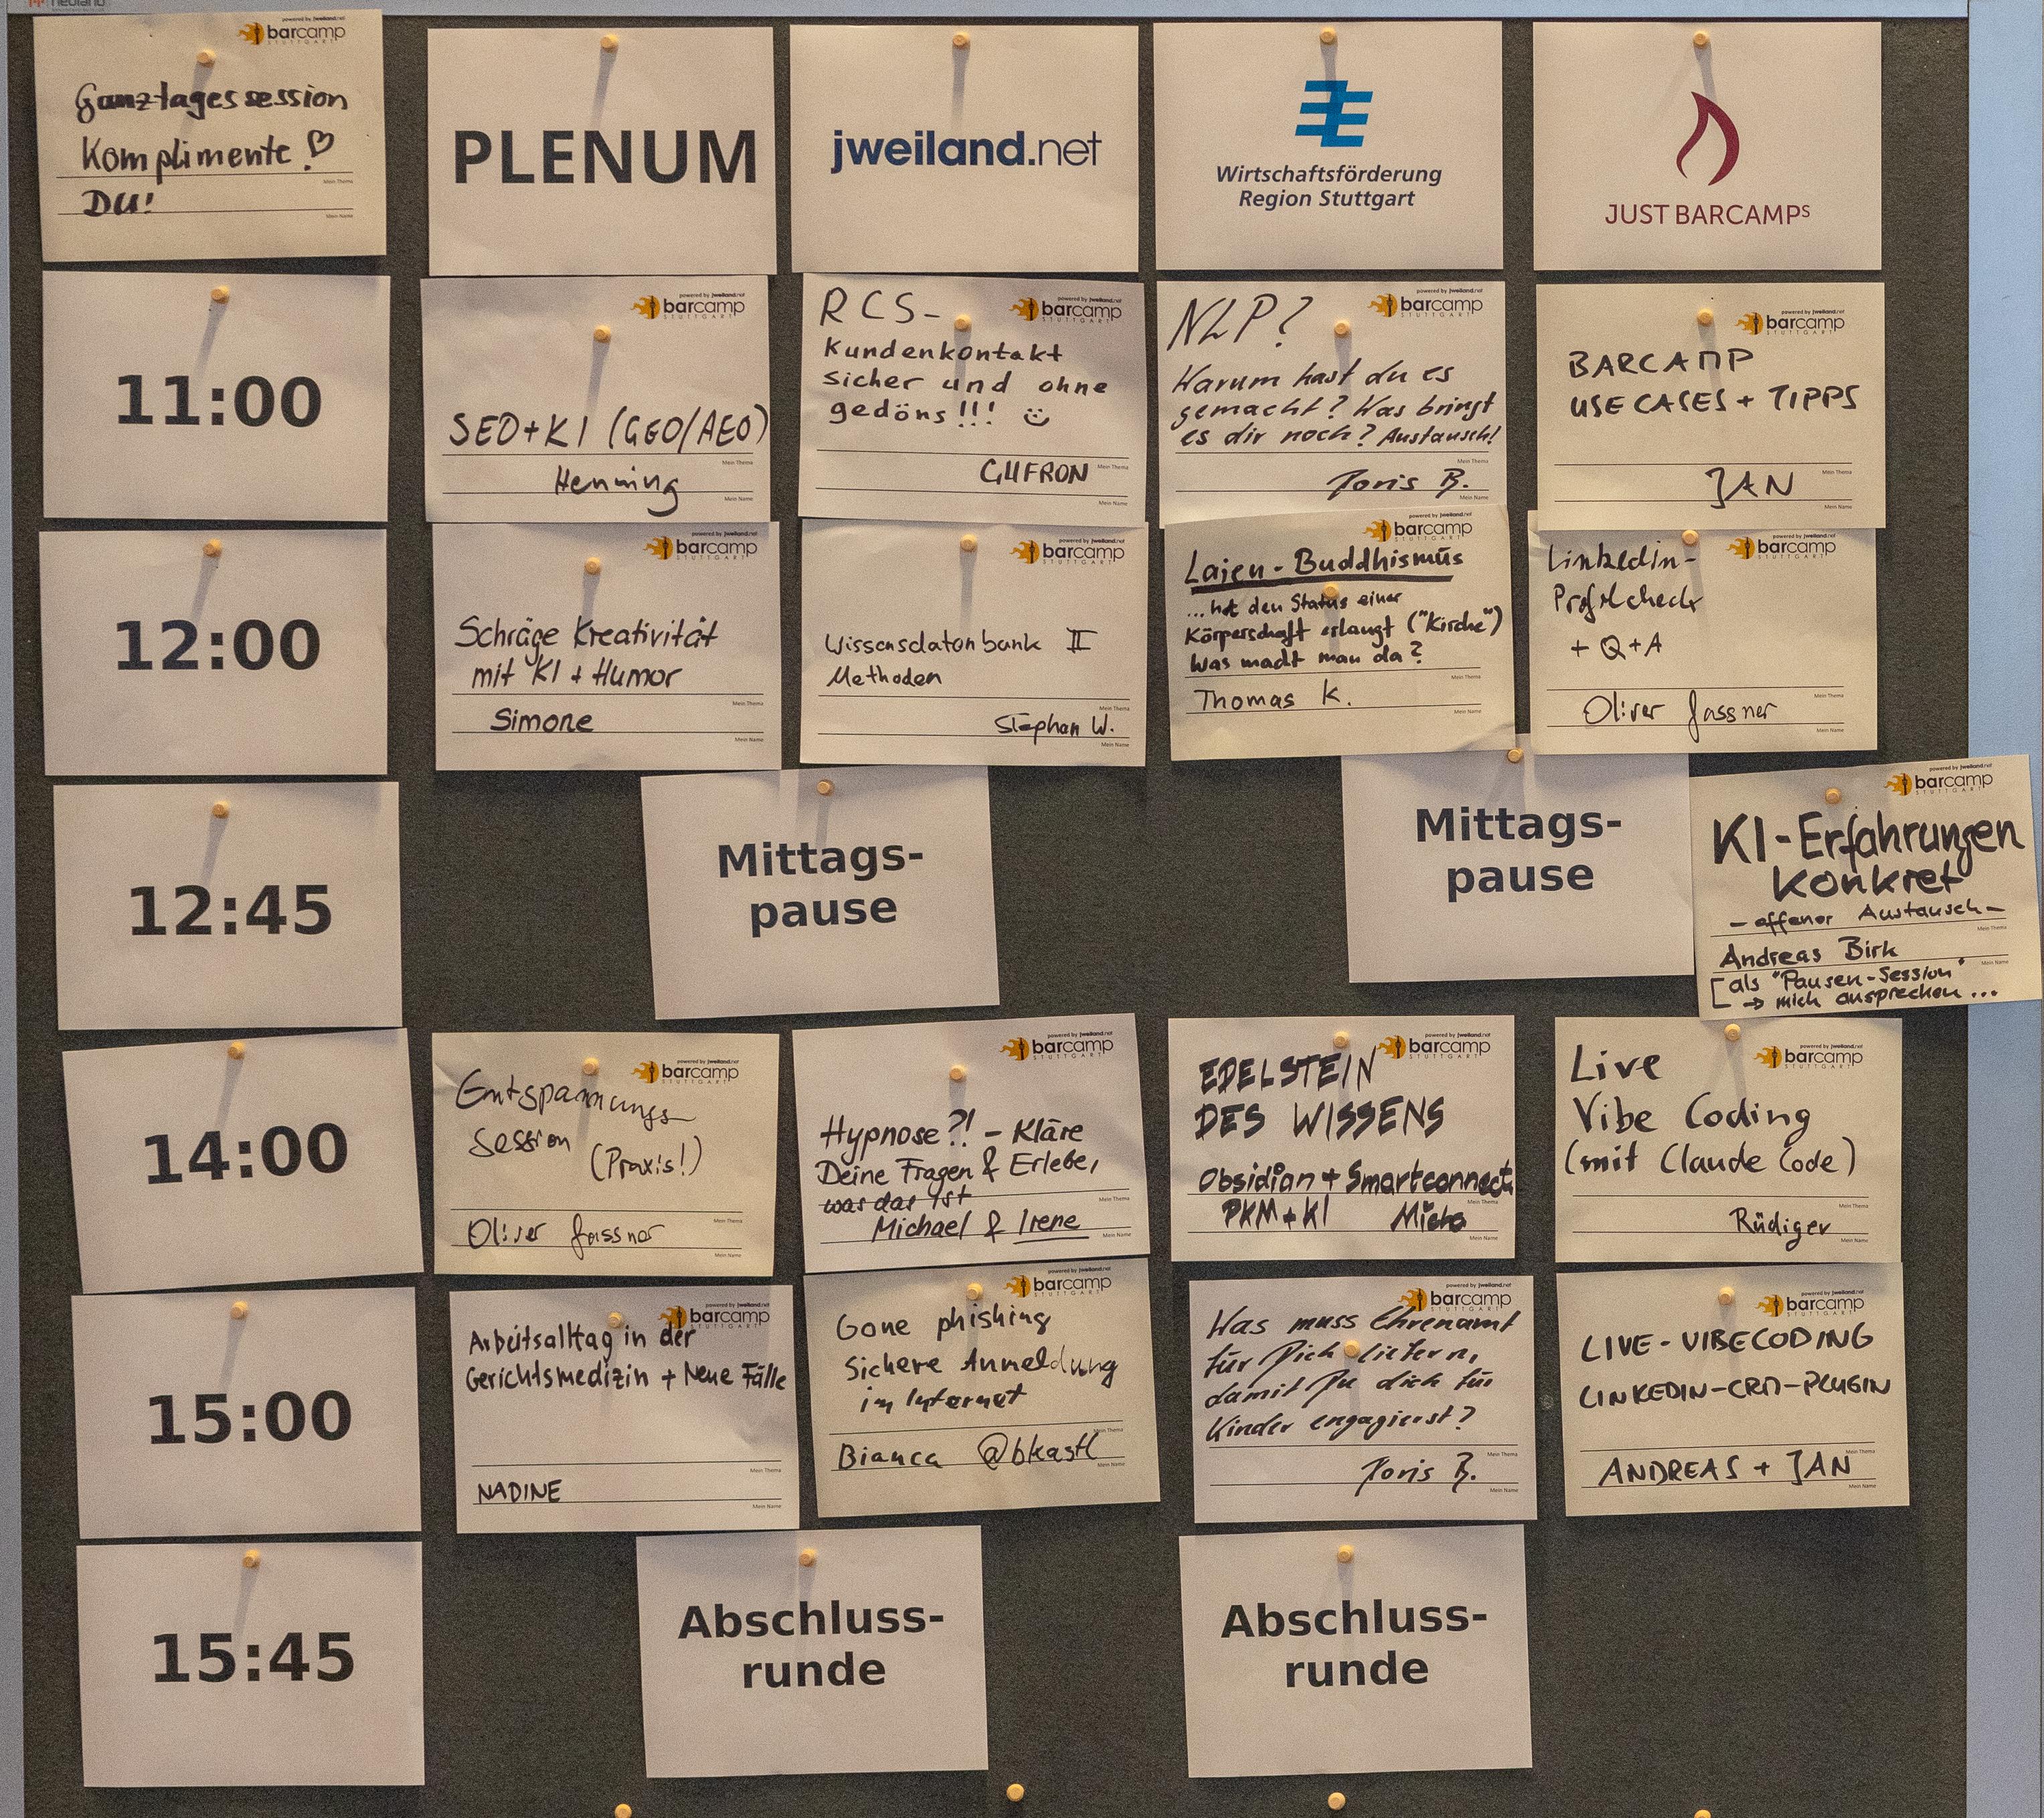 powered by jweiland.net
barcamp
STUTTGART
Ganztagessession
Komplimente! ♡
Mein Thema
DU!
Mein Name
PLENUM
jweiland.net
Wirtschaftsförderung
Region Stuttgart
JUST BARCAMPS
11:00
powered by jweiland.net
barcamp
STUTTGART
SEO+KI (GEO/AEO)
Mein Thema
Henning
Mein Name
RCS-
powered by jweiland.net
barcamp
STUTTGART
Kundenkontakt
sicher und ohne
gedöns!!! ☺
Mein Thema
GUFRON
Mein Name
NLP?
powered by jweiland.net
barcamp
STUTTGART
Warum hast du es
gemacht? Was bringt
es dir noch? Austausch!
Mein Thema
Doris B.
Mein Name
powered by jweiland.net
barcamp
STUTTGART
BARCAMP
USE CASES + TIPPS
Mein Thema
JAN
Mein Name
12:00
powered by jweiland.net
barcamp
STUTTGART
Schräge Kreativität
mit KI + Humor
Mein Thema
Simone
Mein Name
powered by jweiland.net
barcamp
STUTTGART
Wissensdatenbank II
Methoden
Mein Thema
Stephan W.
Mein Name
powered by jweiland.net
barcamp
STUTTGART
Laien-Buddhismus
...hat den Status einer
Körperschaft erlangt ("Kirche")
Was macht man da?
Mein Thema
Thomas K.
Mein Name
powered by jweiland.net
barcamp
STUTTGART
Linkedin-
Profilcheck
+ Q+A
Mein Thema
Oliver Gassner
Mein Name
12:45
Mittags-
pause
Mittags-
pause
powered by jweiland.net
barcamp
STUTTGART
KI-Erfahrungen
konkret
- offener Austausch -
Mein Thema
Andreas Birk
Mein Name
[als "Pausen-Session"
→ mich ansprechen...
14:00
powered by jweiland.net
barcamp
STUTTGART
Entspannungs
Session (Praxis!)
Mein Thema
Oliver Gassner
Mein Name
powered by jweiland.net
barcamp
STUTTGART
Hypnose?! - Kläre
Deine Fragen & Erlebe,
was das ist
Mein Thema
Michael & Irene
Mein Name
powered by jweiland.net
barcamp
STUTTGART
EDELSTEIN
DES WISSENS
Obsidian + Smartconnect
Mein Thema
PKM+KI
Mein Name
powered by jweiland.net
barcamp
STUTTGART
Live
Vibe Coding
(mit Claude Code)
Mein Thema
Rüdiger
Mein Name
15:00
powered by jweiland.net
barcamp
STUTTGART
Arbeitsalltag in der
Gerichtsmedizin + Neue Fälle
Mein Thema
NADINE
Mein Name
powered by jweiland.net
barcamp
STUTTGART
Gone phishing
Sichere Anmeldung
im Internet
Mein Thema
Bianca @bkastl
Mein Name
powered by jweiland.net
barcamp
STUTTGART
Was muss Ehrenamt
für Dich liefern,
damit Du dich für
Kinder engagierst?
Mein Thema
Doris B.
Mein Name
powered by jweiland.net
barcamp
STUTTGART
LIVE-VIBECODING
LINKEDIN-CRM-PLUGIN
Mein Thema
ANDREAS + JAN
Mein Name
15:45
Abschluss-
runde
Abschluss-
runde